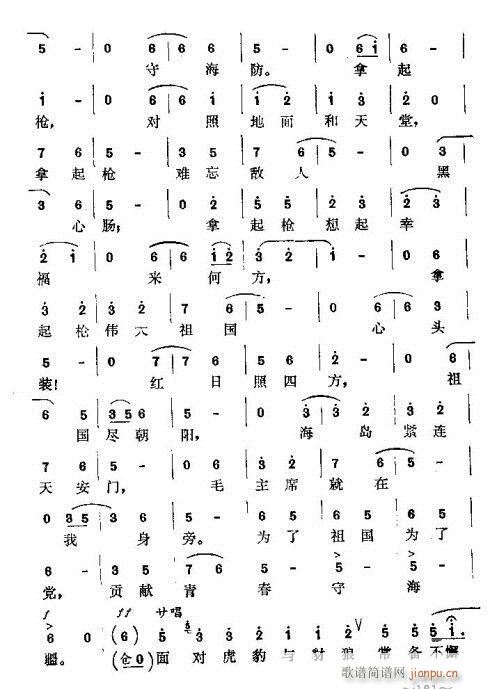 5 - | 0 6 | 6 6 | 5 - | 0 6 i | 6 6
守 海 防。 拿 起
i - | 0 2 | i 3 | 2 2 | i 2 | i 3 | 3 2
枪, 对 照 地 面 和 天 堂,
7 6 | 5 - | 3 5 | 7 7 | 6 - | 0 3
拿 起 枪 难 忘 敌 人 黑
3 6 | 5 - | 0 2 | 5 5 | 2 5 | 3 5
心 肠; 拿 起 枪 想 起 幸
2 i | 0 6 | 6 6 | i 2 | 3 2 | i - | 0 6
福 来 何 方, 拿
3 2 | 2 2 | 7 6 | 5 - | 0 6 | 6 3
起 枪 伟 大 祖 国 心 头
5 - | 0 7 | 7 6 | 5 6 | 7 2 | 2 - | 0 6
装! 红 日 照 四 方, 祖
6 5 | 3 5 5 6 | i - | 0 3 | 3 2 | 2 2
国 尽 朝 阳, 海 岛 紧 连
7 6 | 5 - | 0 2 | 2 - | 3 2 | 7 6
天 安 门, 毛 主 席 就 在
0 3 5 | 3 - | 5 - | 6 5 | 6 5 | 6 5
我 身 旁。 为 了 祖 国 为 了
6 - | 3 5 | 7 6 | 5 - | 5 - | 5 -
党, 贡 献 青 春 守 海
f ff サ唱
6 0 (6) 5 3 2 3 3 2 3 2 5 5 i
疆。 (仓0) 面 对 虎 豹 与 豺 狼 常 备 不 懈
歌谱简谱网
jianpu.cn
181